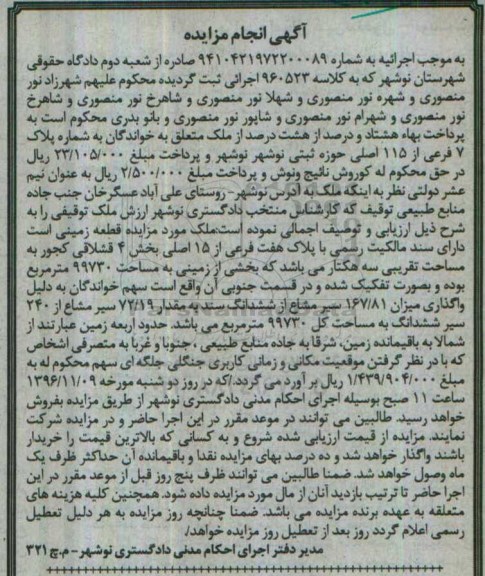 آگهی انجام مزایده
به موجب اجرائیه به شماره ۹۴۱۰۴۲۱۹۷۲۲۰۰۰۸۹ صادره از شعبه دوم دادگاه حقوقی
شهرستان نوشهر که به کلاسه ۹۶۰۵۲۳ اجرائی ثبت گردیده محکوم علیهم شهرزاد نور
منصوری و شهره نور منصوری و شهلا نور منصوری و شاهرخ نور منصوری و شاهرخ
نور منصوری و شهرام نور منصوری و شاپور نور منصوری و بانو بدری محکوم است به
پرداخت بهاء هشتاد و درصد از هشت درصد از ملک متعلق به خواندگان به شماره پلاک
۷ فرعی از ۱۱۵ اصلی حوزه ثبتی نوشهر نوشهر و پرداخت مبلغ ۲۳/۱۰۵/۰۰۰ ریال
در حق محکوم له کوروش نائیج ونوش و پرداخت مبلغ ۲/۵۰۰/۰۰۰ ریال به عنوان نیم
عشر دولتی نظر به اینکه ملک به آدرس نوشهر- روستای علی آباد عسگرخان جنب جاده
منابع طبیعی توقیف که کارشناس منتخب دادگستری نوشهر ارزش ملک توقیفی را به
شرح ذیل ارزیابی و توصیف اجمالی نموده است:ملک مورد مزایده قطعه زمینی است
دارای سند مالکیت رسمی با پلاک هفت فرعی از ۱۵ اصلی بخش ۴ قشلاقی کجور به
مساحت تقریبی سه هکتار می باشد که بخشی از زمینی به مساحت ۹۹۷۳۰ مترمربع
بوده و بصورت تفکیک شده و در قسمت جنوبی آن واقع است سهم خواندگان به دلیل
واگذاری میزان ۱۶۷/۸۱ سیر مشاع از ششدانگ سند به مقدار ۷۲/۱۹ سیر مشاع از ۲۴۰
سیر ششدانگ به مساحت کل ۹۹۷۳۰ مترمربع می باشد. حدود اربعه زمین عبارتند از
شمالا به باقیمانده زمین، شرقا به جاده منابع طبیعی ، جنوبا و غربا به متصرفی اشخاص
که با در نظر گرفتن موقعیت مکانی و زمانی کاربری جنگلی جلگه ای سهم محکوم له به
مبلغ ۱/۴۳۹/۹۰۴/۰۰۰ ریال بر آورد می گردد./که در روز دو شنبه مورخه ۱۳۹۶/۱۱/۰۹
ساعت ۱۱ صبح بوسیله اجرای احکام مدنی دادگستری نوشهر از طریق مزایده بفروش
خواهد رسید. طالبین می توانند در موعد مقرر در این اجرا حاضر و در مزایده شرکت
نمایند. مزایده از قیمت ارزیابی شده شروع و به کسانی که بالاترین قیمت را خریدار
باشند واگذار خواهد شد و ده درصد بهای مزایده نقدا و باقیمانده آن حداکثر ظرف یک
ماه وصول خواهد شد. ضمنا طالبین می توانند ظرف پنج روز قبل از موعد مقرر در این
اجرا حاضر تا ترتیب بازدید آنان از مال مورد مزایده داده شود. همچنین کلیه هزینه های
متعلقه به عهده برنده مزایده می باشد. ضمنا چنانچه روز مزایده به هر دلیل تعطیل
رسمی اعلام گردد روز بعد از تعطیل روز مزایده خواهد./
مدیر دفتر اجرای احکام مدنی دادگستری نوشهر- م.چ ۳۲۱